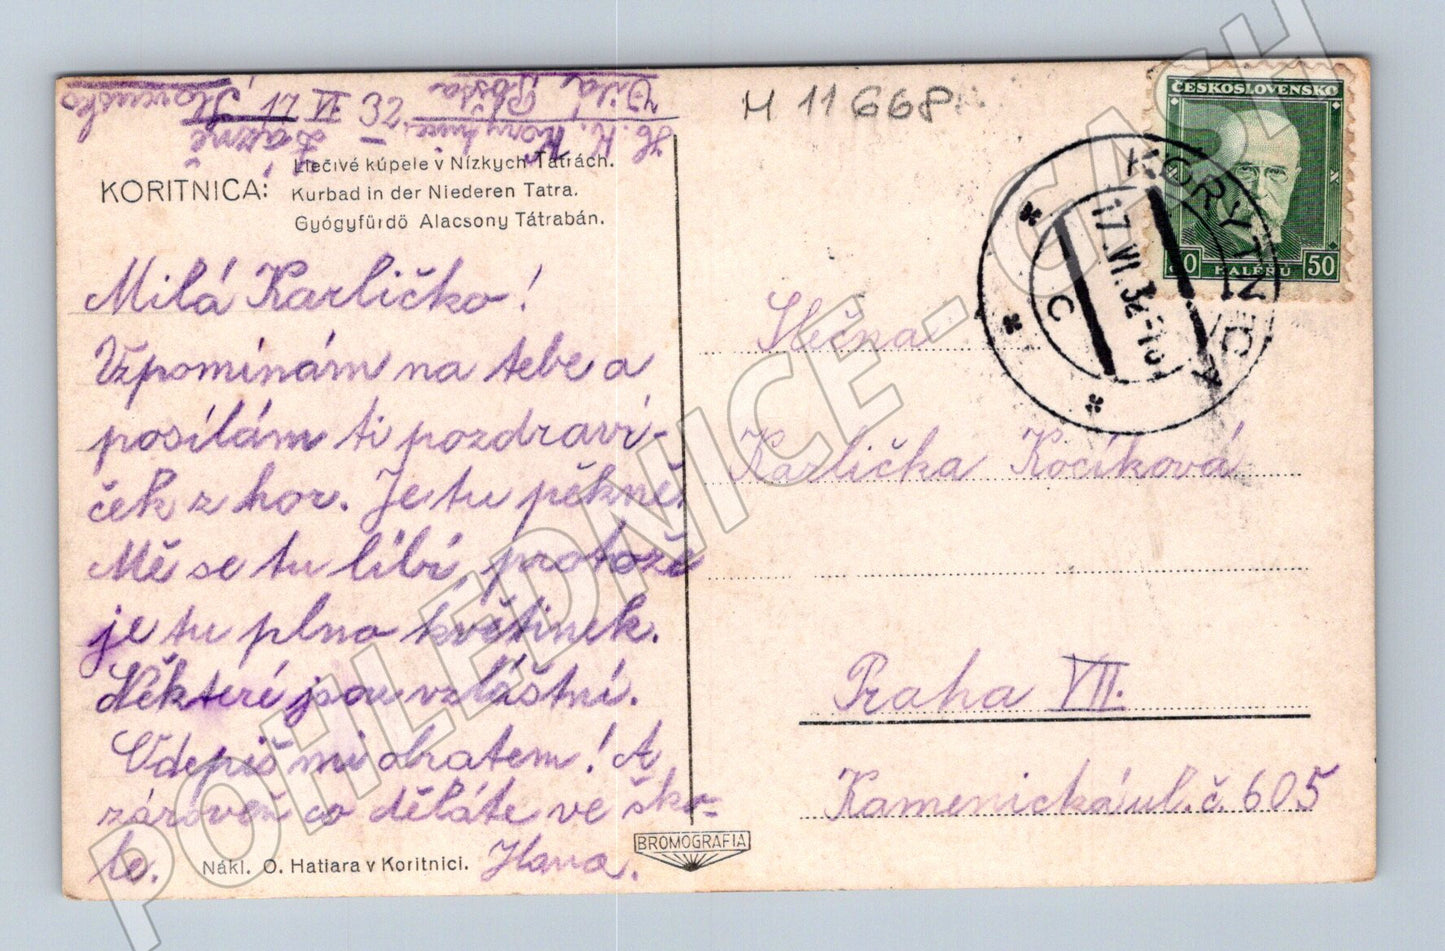 H. K.
Vila Rosta
17 VI 32
Slovensko
M 11668
ČESKOSLOVENSKO
50 HALÉŘŮ 50
KORYTNICA
17.VI.32
C
KORITNICA:
Liečivé kúpele v Nízkych Tatrách.
Kurbad in der Niederen Tatra.
Gyógyfürdö Alacsony Tátrabán.
Milá Karličko!
Vzpomínám na tebe a
posílám ti pozdraví-
ček z hor. Je tu pěkně.
Mě se tu líbí, protože
je tu plno květinek.
Některé jsou vzláštní.
Odepiš mi obratem! A
zároveň co děláte ve ško-
le.
Hana.
Nákl. O. Hatiara v Koritnici.
BROMOGRAFIA
Slečna
Karlička Kocíková
Praha VII.
Kamenická ul. č. 605
POHLEDNICE - CASH